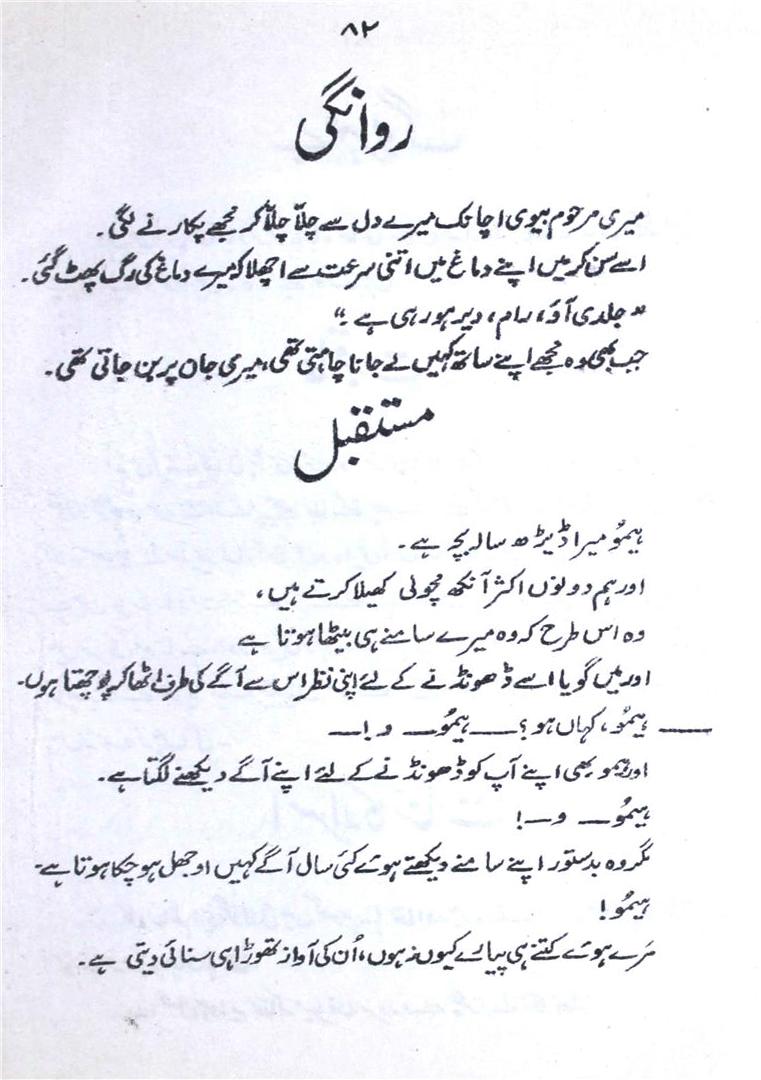 ۸۲
روانگی
میری مرحوم بیوی اچانک میرے دل سے چلّا چلّا کر مجھے پکارنے لگی۔
اسے سن کر میں اپنے دماغ میں اتنی سرعت سے اچھلا کہ میرے دماغ کی رگ پھٹ گئی۔
"جلدی آؤ، رام، دیر ہو رہی ہے۔"
جب بھی وہ مجھے اپنے ساتھ کہیں لے جانا چاہتی تھی، میری جان پر بن جاتی تھی۔
مستقبل
ہیمُو میرا ڈیڑھ سالہ بچہ ہے۔
اور ہم دونوں اکثر آنکھ مچولی کھیلا کرتے ہیں،
وہ اس طرح کہ وہ میرے سامنے ہی بیٹھا ہوتا ہے
اور میں گویا اسے ڈھونڈنے کے لئے اپنی نظر اس سے آگے کی طرف اٹھا کر پوچھتا ہوں۔
—— ہیمُو، کہاں ہو؟ —— ہیمُو—— و—!—
اور ہیمو بھی اپنے آپ کو ڈھونڈنے کے لئے اپنے آگے دیکھنے لگتا ہے۔
ہیمُو—— و—!
مگر وہ بدستور اپنے سامنے دیکھتے ہوئے کئی سال آگے کہیں اوجھل ہو چکا ہوتا ہے۔
ہیمُو!
مَرے ہوئے کتنے ہی پیارے کیوں نہ ہوں، اُن کی آواز تھوڑا ہی سنائی دیتی ہے۔